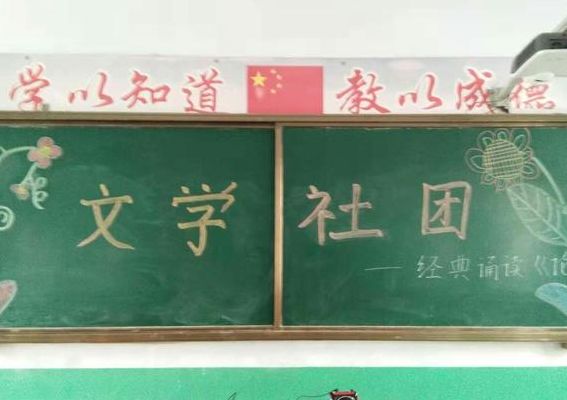 学以知道 教以成德
文学社团
——经典诵读《